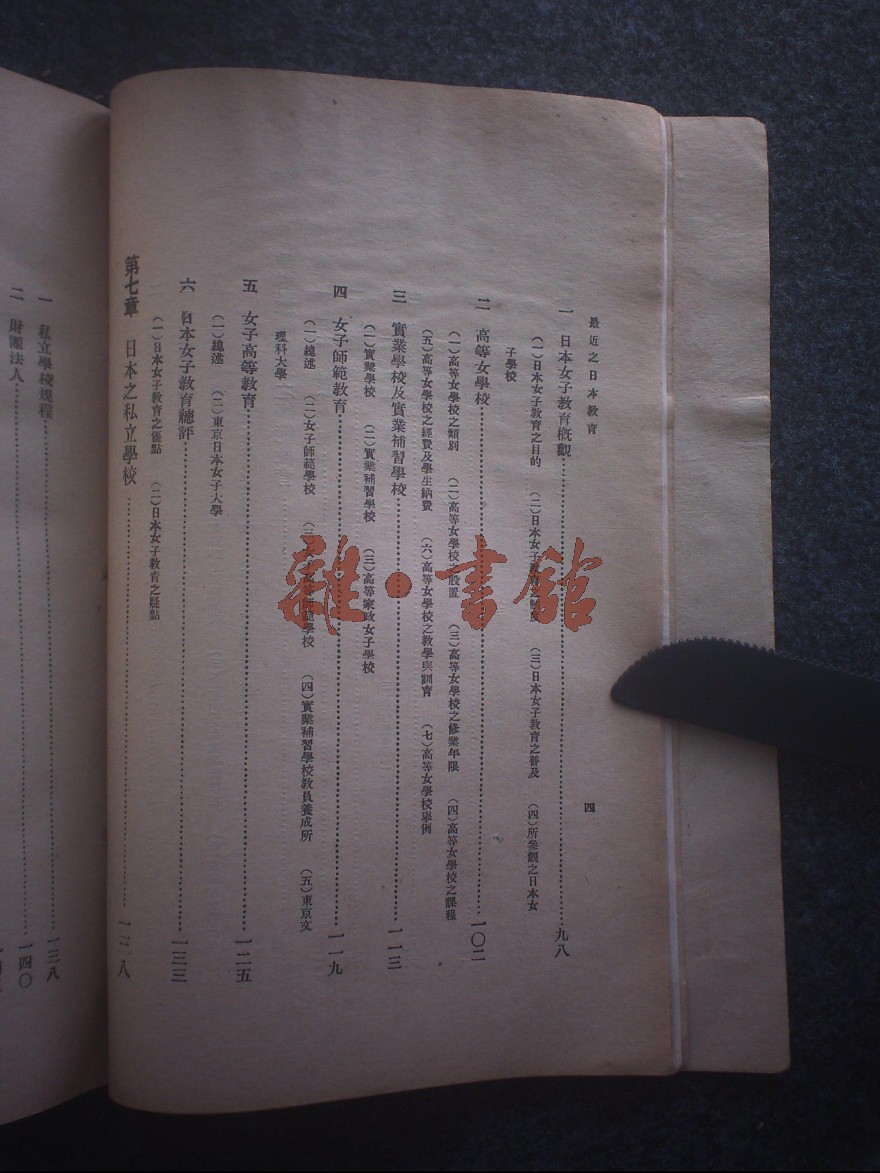 最近之日本敎育
四
一 日本女子敎育槪觀……九八
(一)日本女子敎育之目的 (二)日本女子敎育之 (三)日本女子敎育之普及 (四)所參觀之日本女
子學校
二 高等女學校……一〇二
(一)高等女學校之類別 (二)高等女學校之設置 (三)高等女學校之修業年限 (四)高等女學校之課程
(五)高等女學校之經費及學生納費 (六)高等女學校之敎學與訓育 (七)高等女學校舉例
三 實業學校及實業補習學校……一一三
(一)實業學校 (二)實業補習學校 (三)高等家政女子學校
四 女子師範敎育……一一九
(一)總述 (二)女子師範學校 (三)師範學校 (四)實業補習學校敎員養成所 (五)東京文
理科大學
五 女子高等敎育……一二五
(一)總述 (二)東京日本女子大學
六 日本女子敎育總評……一三三
(一)日本女子敎育之優點 (二)日本女子敎育之疑點
第七章 日本之私立學校……一三八
一 私立學校規程……一三八
二 財團法人……一四〇
雜·書館